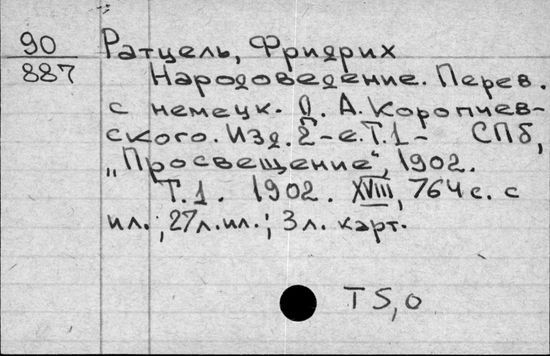 90 Ратцель, Фридрих
887 Народоведение. Перев.
с немецк. Д. А. Коропчев-
ского. Изд. 2-е. Т.1- СПб,
„Просвещение“, 1902.
Т.1. 1902. XVIII, 764 с. с
ил.; 27л.ил.; 3л. карт.
T 5,0